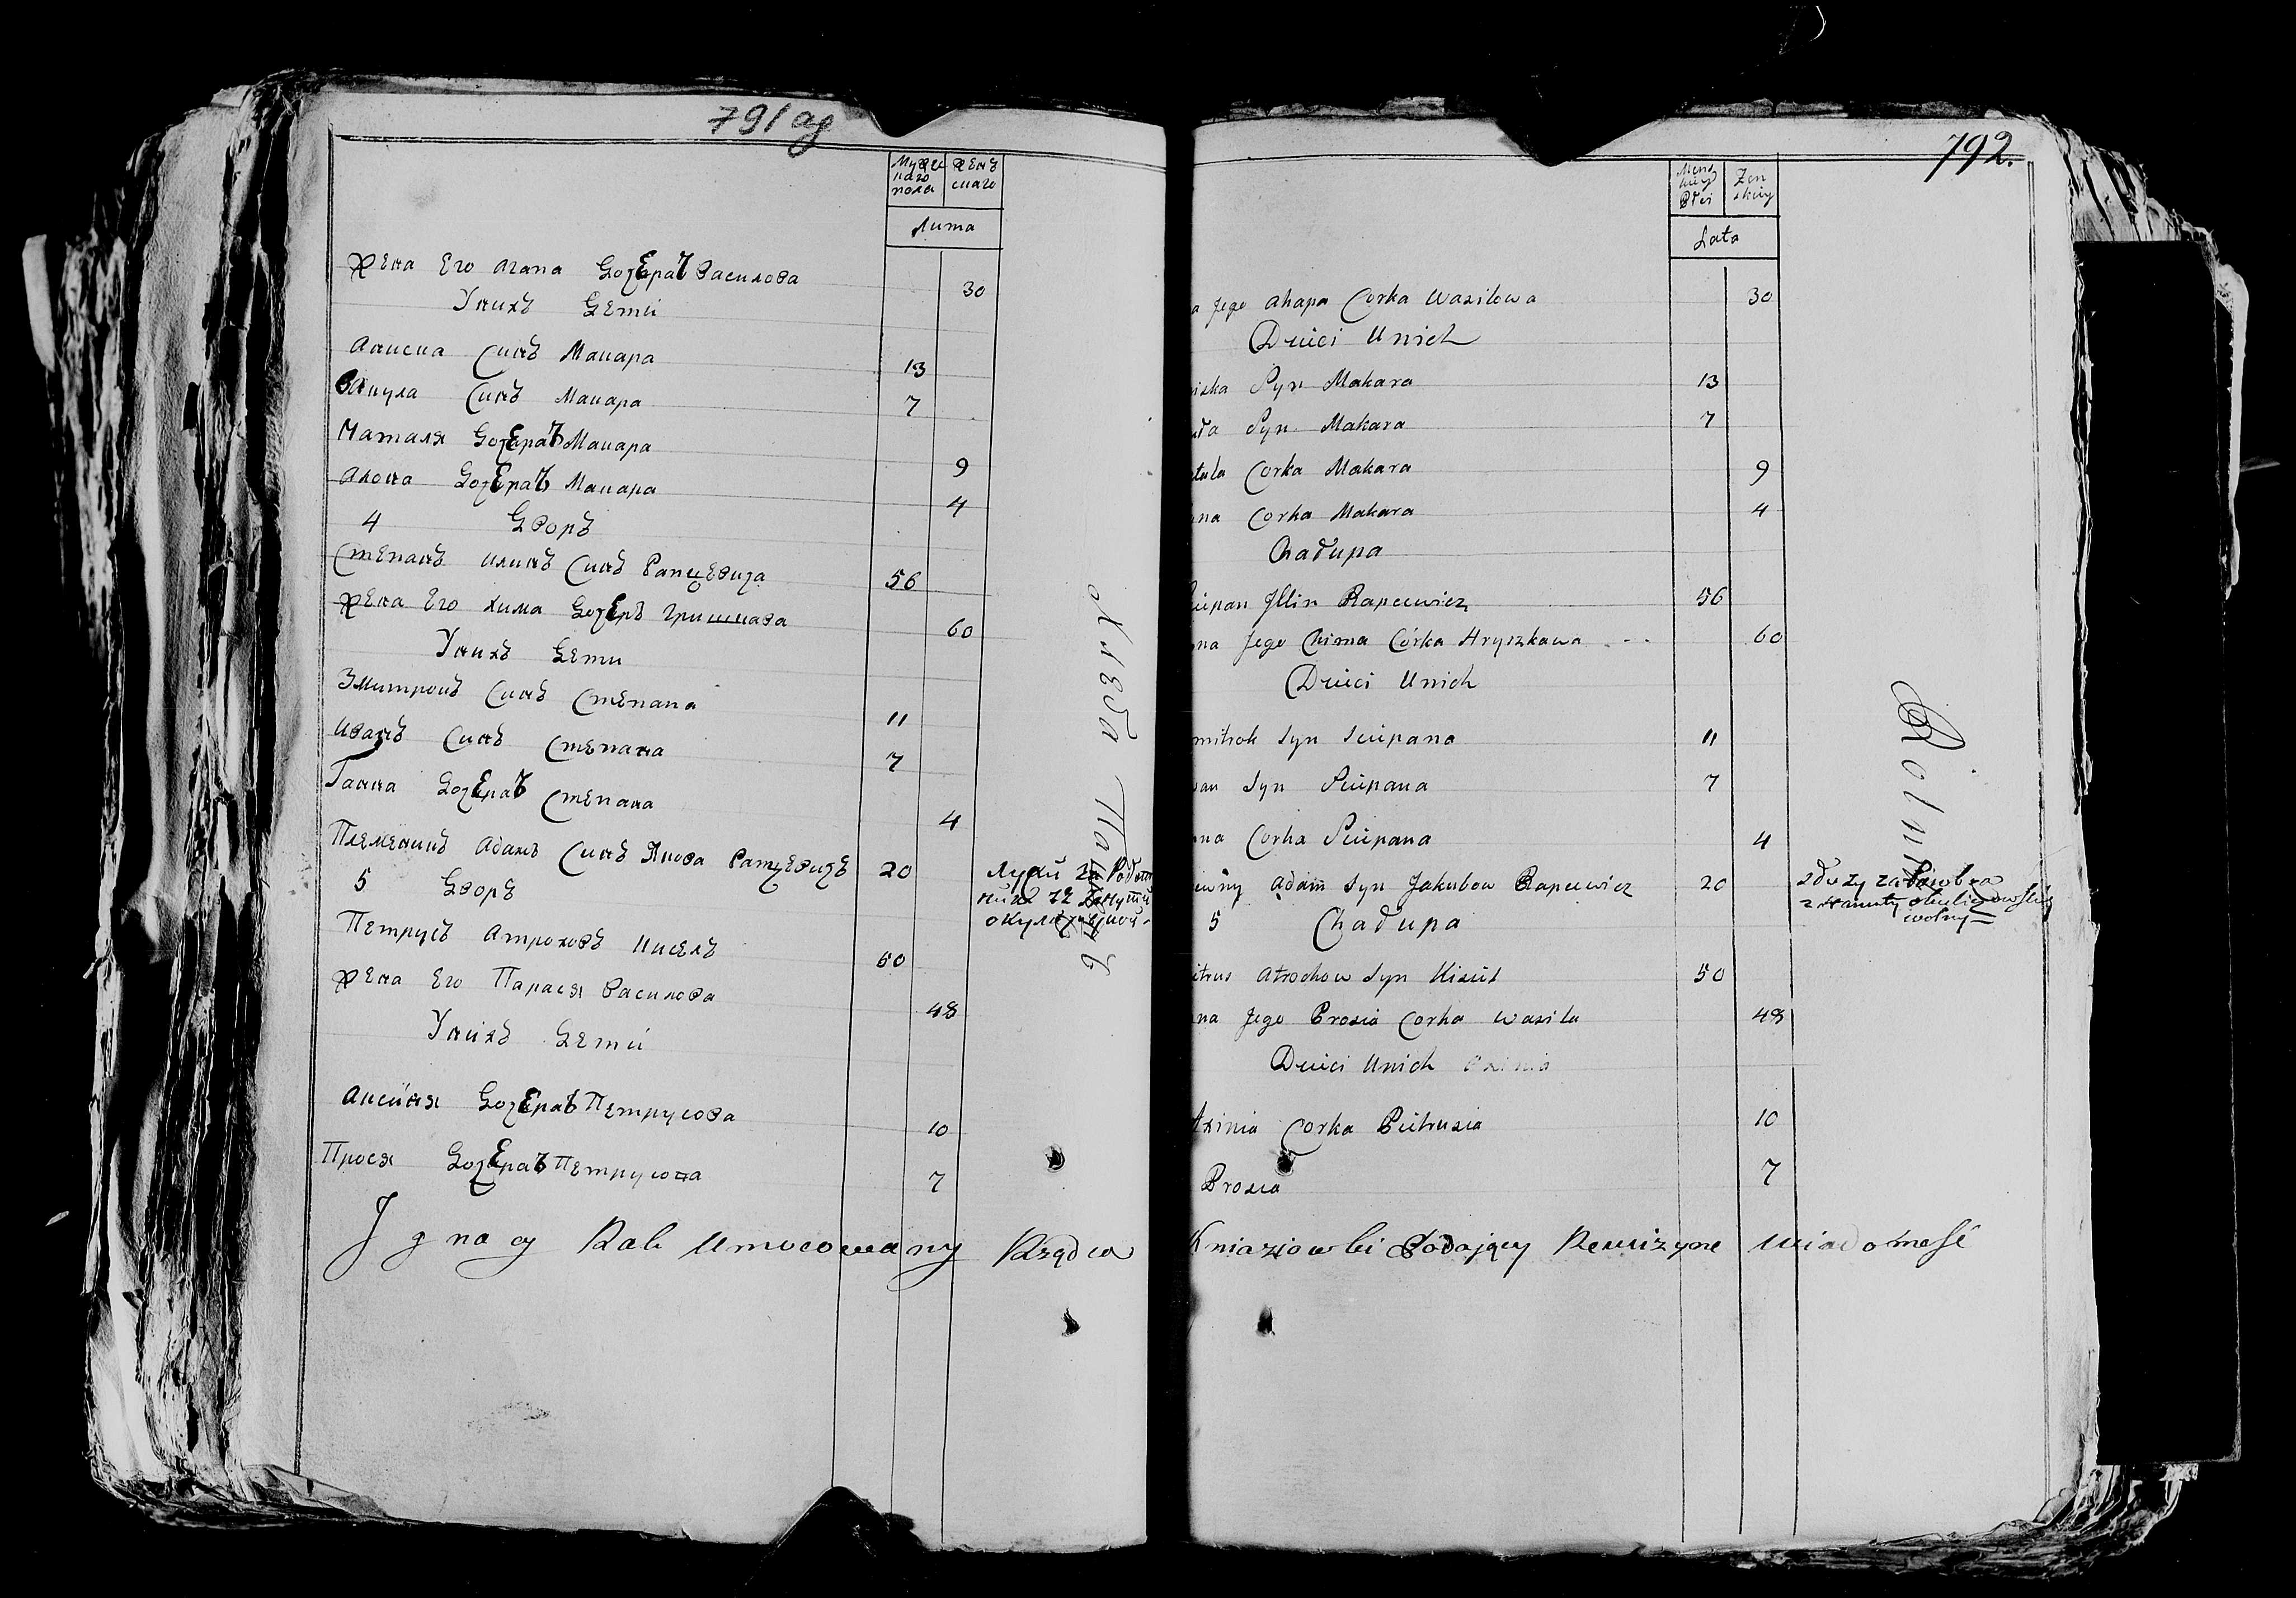 791 об
Мужес
каго
пола
женъ
скаго
Лита
жена Его Агапа Дочерать Василова 30
Унихъ Дети
Алиска Синъ Макара 13
Вакула Синъ Макара 7
Наталя Дочерать Макара 9
Алона Дочерать Макара 4
4 Дворъ
Степанъ Илинъ Синъ Рапцевича 56
жена Его Хима Дочеръ Гришкава 60
Унихъ Дети
Змитрокъ Синъ Степана 11
Иванъ Синъ Степана 7
Ганна Дочерать Степана 4
Племеникъ Адамъ Синъ Якова Рапцевичъ 20
5 Дворъ
Петрусъ Атроховъ Кисель 50
жена Его Парася Василова 48
Унихъ Дети
Аксиня Дочерать Петрусова 10
Прося Дочерать Петрусова 7
Хлеба
Ignacy Rak Umocowany Rządca
792.
Mens
kiey
Płci
Zen
skiey
Lata
a Jego Ahapa Corka Wasilowa 30
Dzieci Unich
iska Syn Makara 13
uła Syn Makara 7
tala Corka Makara 9
na Corka Makara 4
Chałupa
ciepan Illin Rapcewicz 56
na Jego Chima Córka Hryszkawa 60
Dzieci Unich
mitrok Syn Sciepana 11
wan Syn Sciepana 7
na Corka Sciepana 4
ewny Adam Syn Jakubow Rapcewicz 20
5 Chałupa
itrus Atrochow Syn Kisiel 50
na Jego Prosia Corka Wasila 48
Dzieci Unich
Axinia Corka Pietrusia 10
Prosia 7
Rolnik
służy za Parobka
Kniaziowki Podający Rewizyine wiadomość